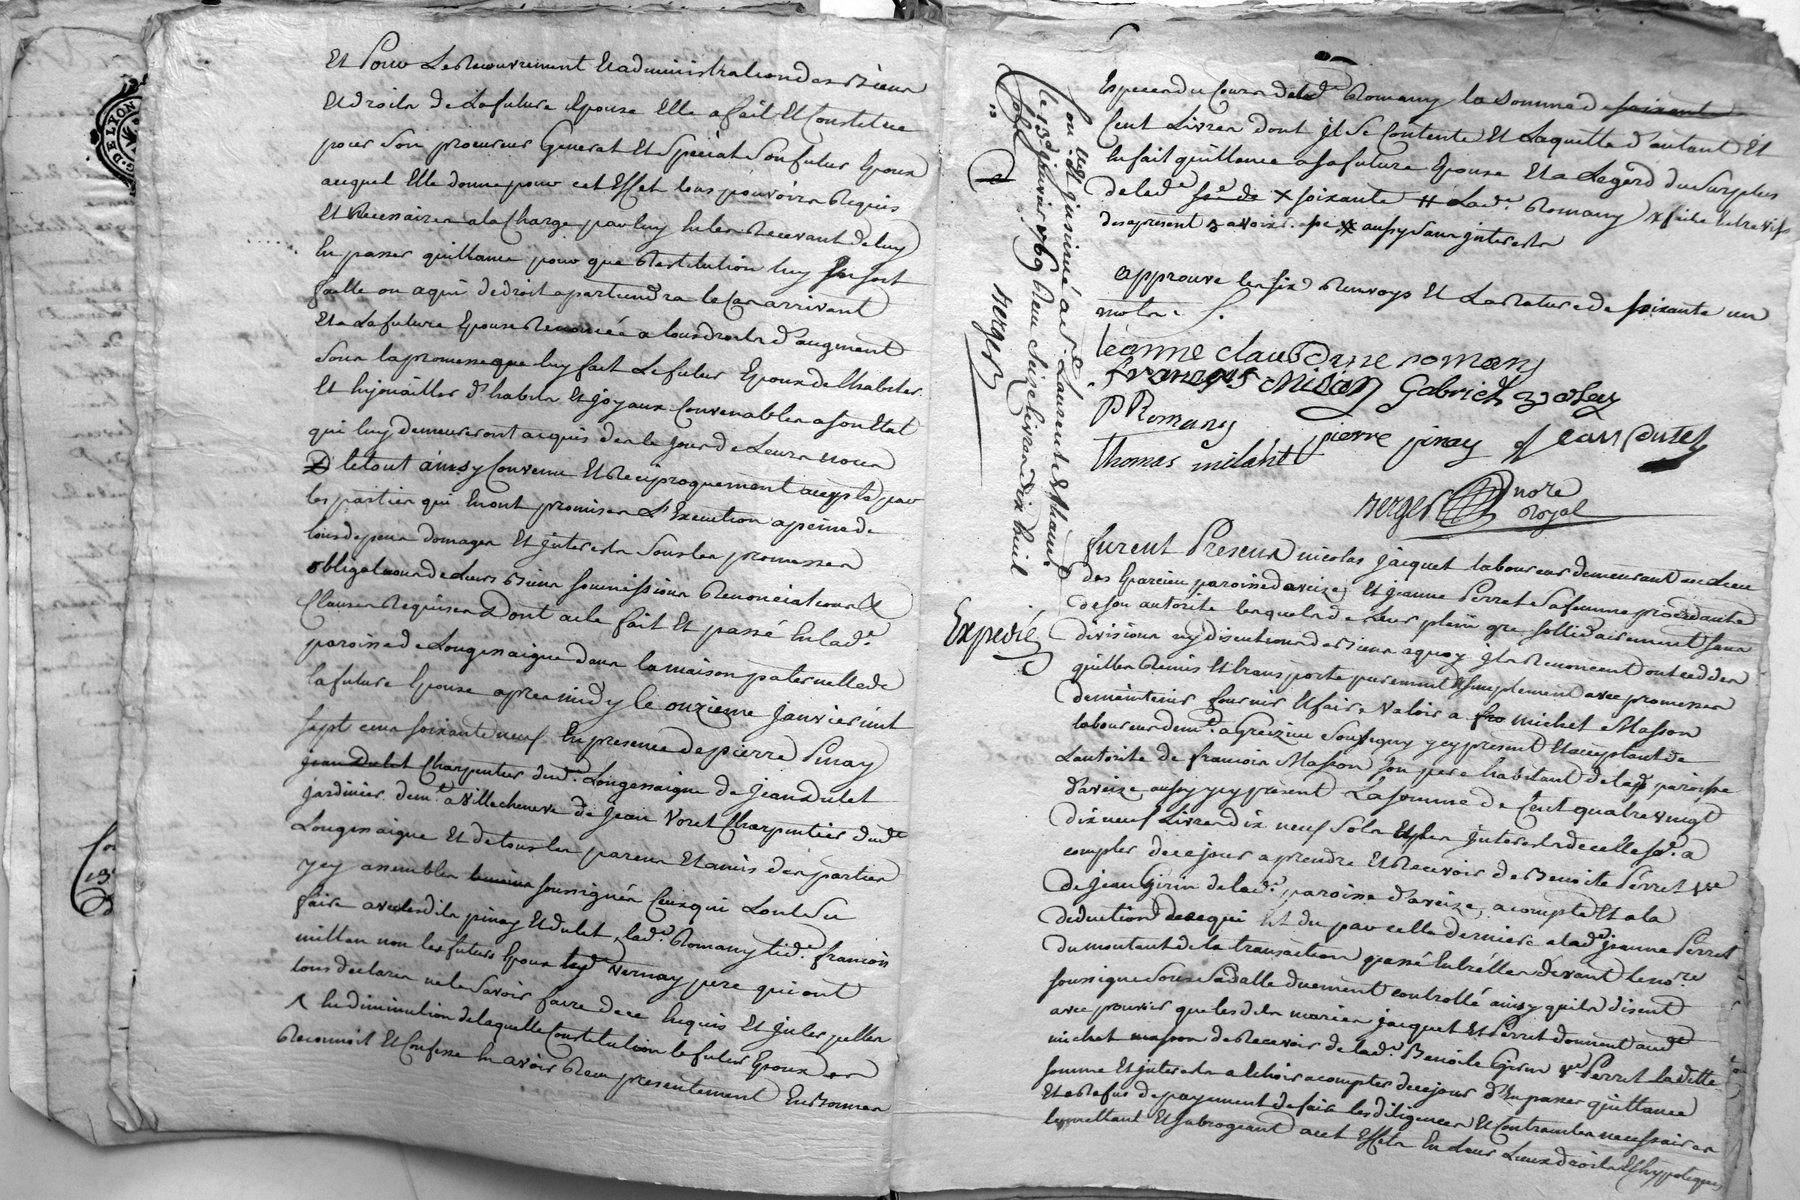 Et Pour Le Recouvrement Et administration des Biens
Et droits de La future Epouse Elle a fait Et Constitue
pour Son procureur General Et Special Son futur Epoux
auquel Elle donne pour cet Effet tous pouvoirs Requis
Et Necessaires a la Charge par luy En les Recevant de luy
En passer quittance pour que Restitution luy En soit
faitte ou a qui de droit apartiendra le Cas arrivant
Et a La future Epouse Renoncée a tous droits d'augment
Sous la promesse que luy fait Le futur Epoux de L'habiller
Et Enjouailler d'habits Et joyaux Convenables a son Etat
qui luy demeureront acquis des le jour de Leurs noces
le tout ainsy Convenu Et Reciproquement accepté par
les parties qui En ont promis L'Execution a peine de
tous depens domages Et jnterests Sous les promesses
obligations de Leurs Biens Soumissions Renonciations &
Clauses Requises Dont acte fait Et passé En lad.e
paroisse de Longessaigne dans la maison paternelle de
la future Epouse apres midy le onzieme janvier mil
sept cens soixante neuf En presence de pierre Pinay
jean Dutel Charpentier dud. Longessaigne de jean Dutel
jardinier dem.t a Villecheneve de jean Voret Charpentier dud.
Longessaigne Et de tous les parens Et amis des parties
yey assembles soussignés Ceux qui L'ont Su
faire avec lesdits pinay Et dutel, lad.e Romany led. françois
millan non les futurs Epoux led. Vernay pere qui ont
tous declaré ne le Savoir faire de ce Enquis Et jnterpellés
En diminution de laquelle Constitution le futur Epoux
Reconnoit Et Confesse En avoir Reçu presentement En Bonnes
Especes du Cours de lad.e Romany la somme de soixante
Cent Livres dont jl Se Contente Et Laquitte d'autant Et
En fait quittance a sa future Epouse Et a L'egard du Surplus
de lad.e X soixante # Lad.e Romany X faite Entre vifs
des apresent aussy Sans jnterests
approuve les six Renvoys Et La Rature de soixante un
mots.
jeanne claudine romany
françois milan Gabriel
P Romany pierre pinay jean Dutel
thomas milant
Berger no.re
Royal
Con.lé & jnsinué a S.t Laurent de Chamous.
le 13.e janvier 1769 Reçu Seize livres dix huit
sols
Berger
Furent Presens nicolas jacquet laboureur demeurant au Lieu
des Garcieu paroisse d'aveize, Et jeanne Perret Sa femme procédante
de son autorite lesquels de Leur plein gre sollidairement sans
Expedié
division ny discution de Biens a quoy jls Renoncent ont cedder
quitter Remis Et transporte purement & simplement avec promesses
de maintenir fournir & faire Valoir a michel Masson
laboureur dem.t a Greizieu Soussigny yey present Et acceptant de
L'autorite de francois Masson Son pere habitant de lad. paroisse
d'aveize aussy yey present La somme de Cent quatre vingt
dix neuf Livres dix neuf Sols Et les jnterests de celle so.e a
compter de ce jour a prendre Et Recevoir de Benoite Perret v.ve
de jean Girin de lad.e paroisse d'aveize, a compte Et a la
deduction de ce qui Est du par cette derniere a lad.e jeanne Perret
du montant de la transaction passé Entr'elles devant le no.re
soussigne Sous Sa datte duement controllé ainsy quils disent
avec pouvoir que lesdits mariés jacquet Et Perret donnent aud.
michel masson de Recevoir de lad.e Benoite Perret laditte
somme Et jnterests a Echoir a compter de ce jour d'En passer quittance
Et a Refus de payement de faire les diligences Et Contraintes necessaires
le mettant Et subrogeant a cet Effet En Leur Lieux droits Et hypoteques